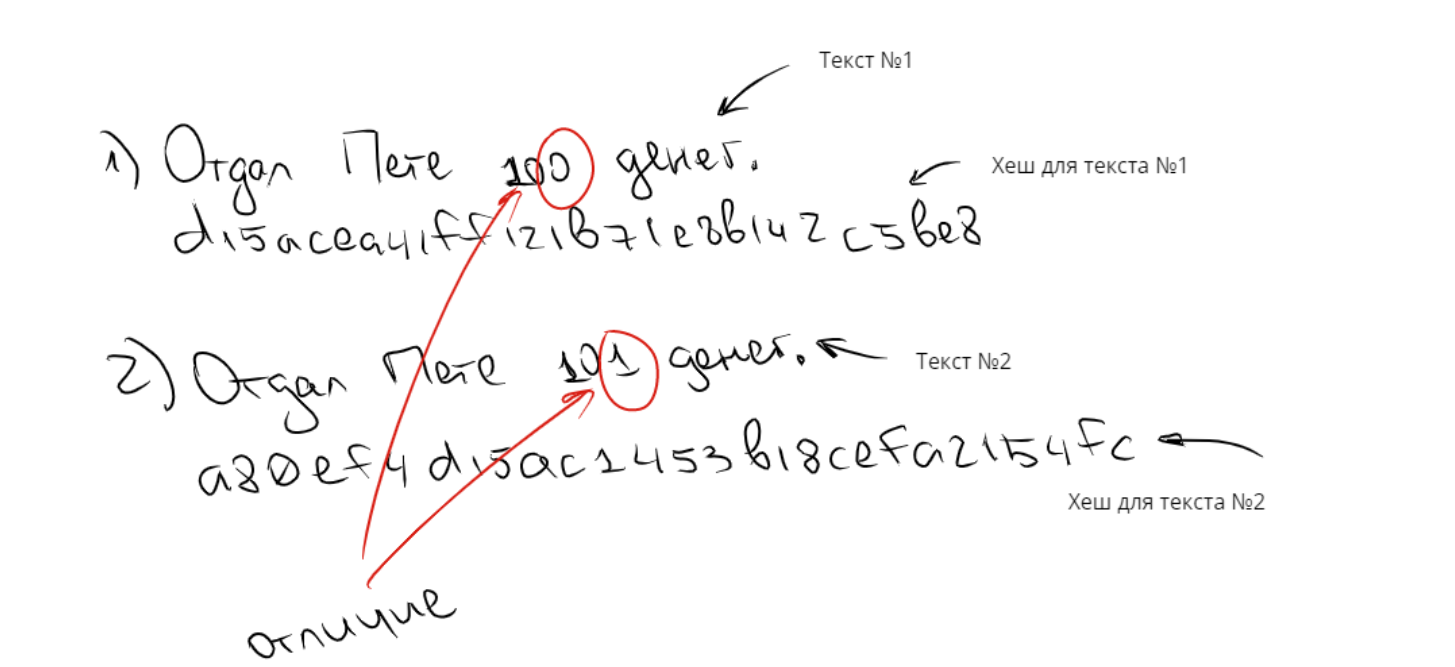 Текст №1
1) Отдал Пете 100 денег.
Хеш для текста №1
d15acea41ff121b71e3b142c5be8
2) Отдал Пете 101 денег.
Текст №2
a80ef4d15ac1453b18cefa2154fc
Хеш для текста №2
отличие